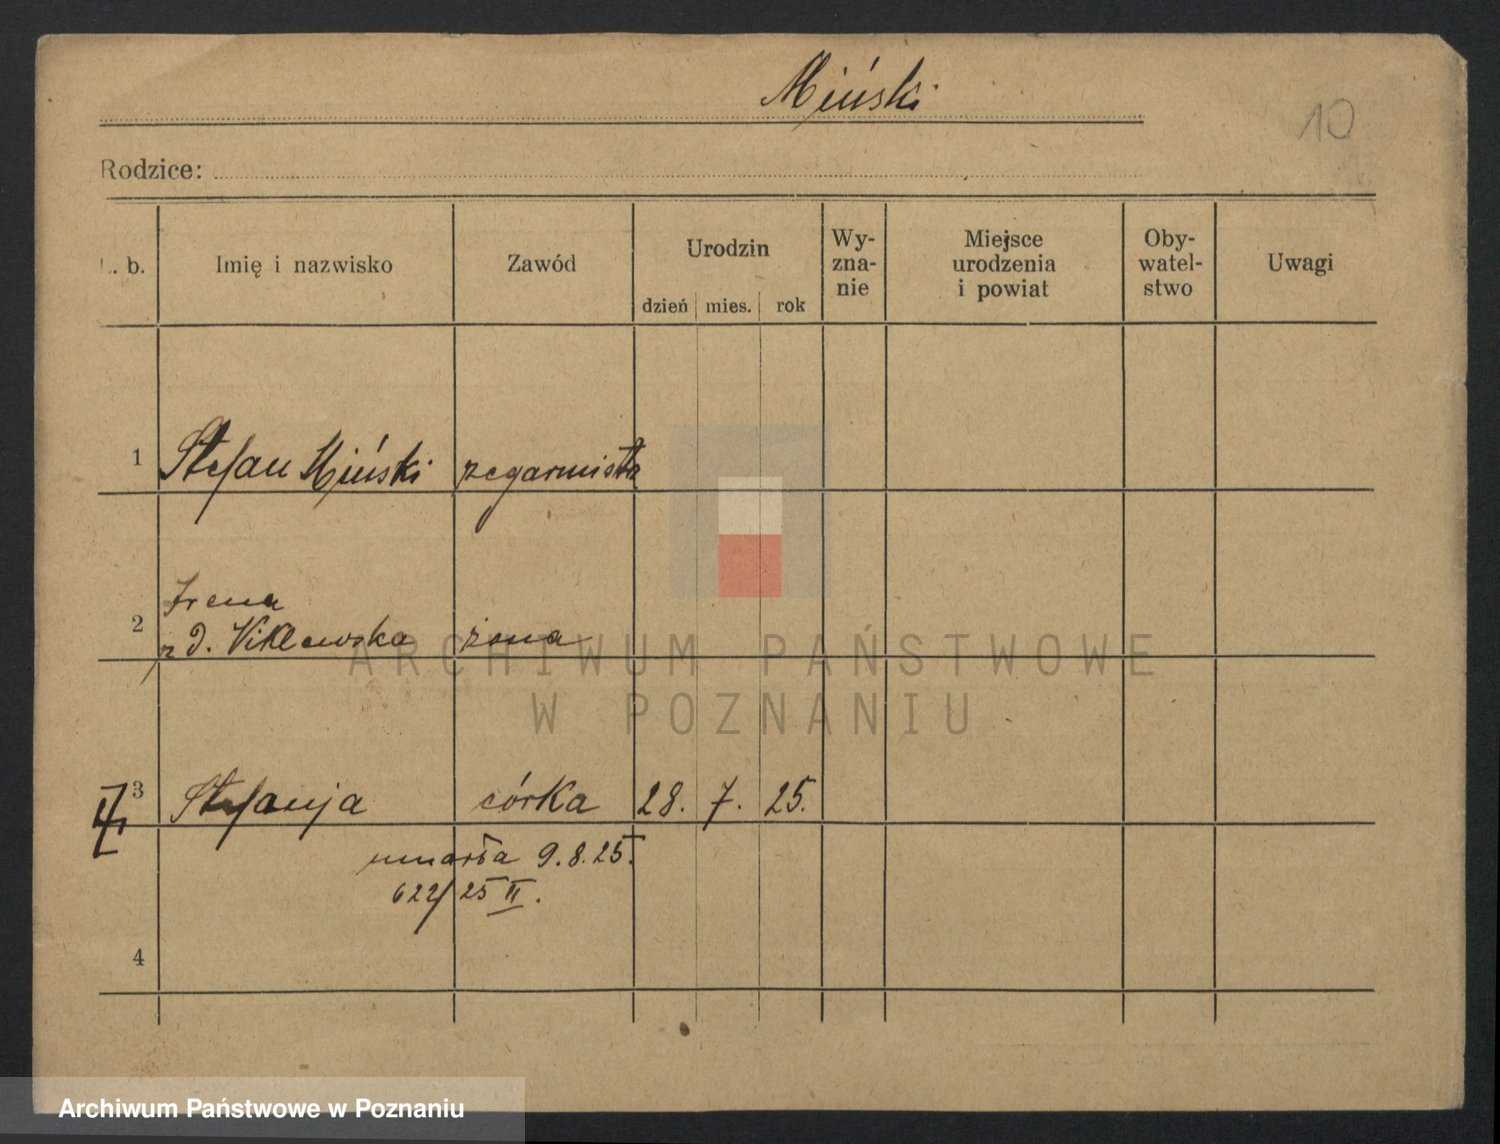 Miński
10
Rodzice:
L. b.
Imię i nazwisko
Zawód
Urodzin
dzień mies. rok
Wy-
zna-
nie
Miejsce
urodzenia
i powiat
Oby-
watel-
stwo
Uwagi
1 Stefan Miński zegarmistrz
2 Irena
z d. Viklewska żona
3 Stefanja córka 28. 7. 25.
umarła 9.8.25.
622/25 II.
4
ARCHIWUM PAŃSTWOWE
W POZNANIU
Archiwum Państwowe w Poznaniu